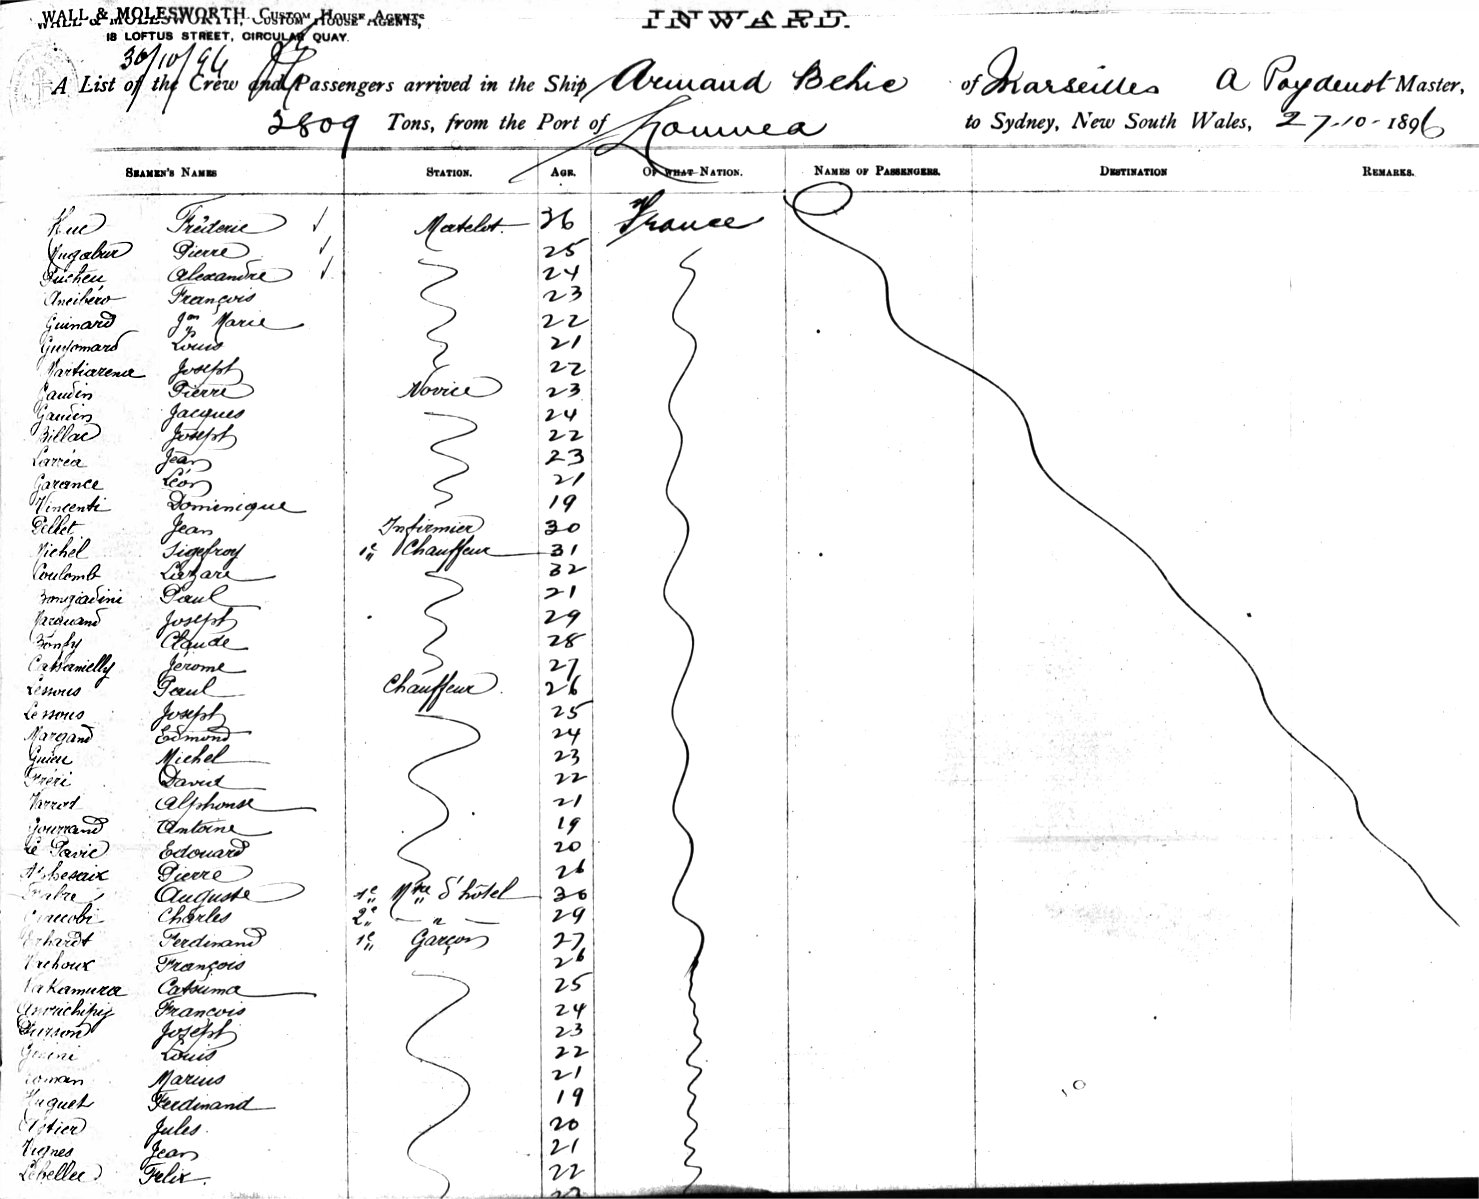 WALL & MOLESWORTH, CUSTOM HOUSE AGENTS,
18 LOFTUS STREET, CIRCULAR QUAY.
INWARD.
30/10/96
A List of the Crew and Passengers arrived in the Ship Armand Behic of Marseilles A Poydenot Master,
3809 Tons, from the Port of Noumea to Sydney, New South Wales, 27-10-1896
SEAMEN'S NAMES STATION. AGE. OF WHAT NATION. NAMES OF PASSENGERS. DESTINATION REMARKS.
Huc Fréderic Matelot 36 France
Pierre 25
Alexandre 24
François 23
Guinard Jn Marie 22
Guyomard Louis 21
Joseph 22
Gaudin Pierre Novice 23
Gaudin Jacques 24
Billac Joseph 22
Larréa Jean 23
Garance Léon 21
Vincenti Dominique 19
Pellet Jean Infirmier 30
Michel Sigefroy 1e Chauffeur 31
Coulomb Lazare 32
Paul 21
Joseph 29
Claude 28
Jérome 27
Lessous Paul Chauffeur 26
Lessous Joseph 25
Margand Edmond 24
Michel 23
David 22
Alphonse 21
Antoine 19
Le Pavic Edouard 20
Pierre 26
Fabre Auguste 1e Mtre d'hôtel 30
Giaccobi Charles 2e — " — 29
Erhardt Ferdinand 1e Garçon 27
François 26
Nakamura Catsuma 25
François 24
Joseph 23
Louis 22
Marius 21
Huguet Ferdinand 19
Jules 20
Vignes Jean 21
Lebellec Felix 22